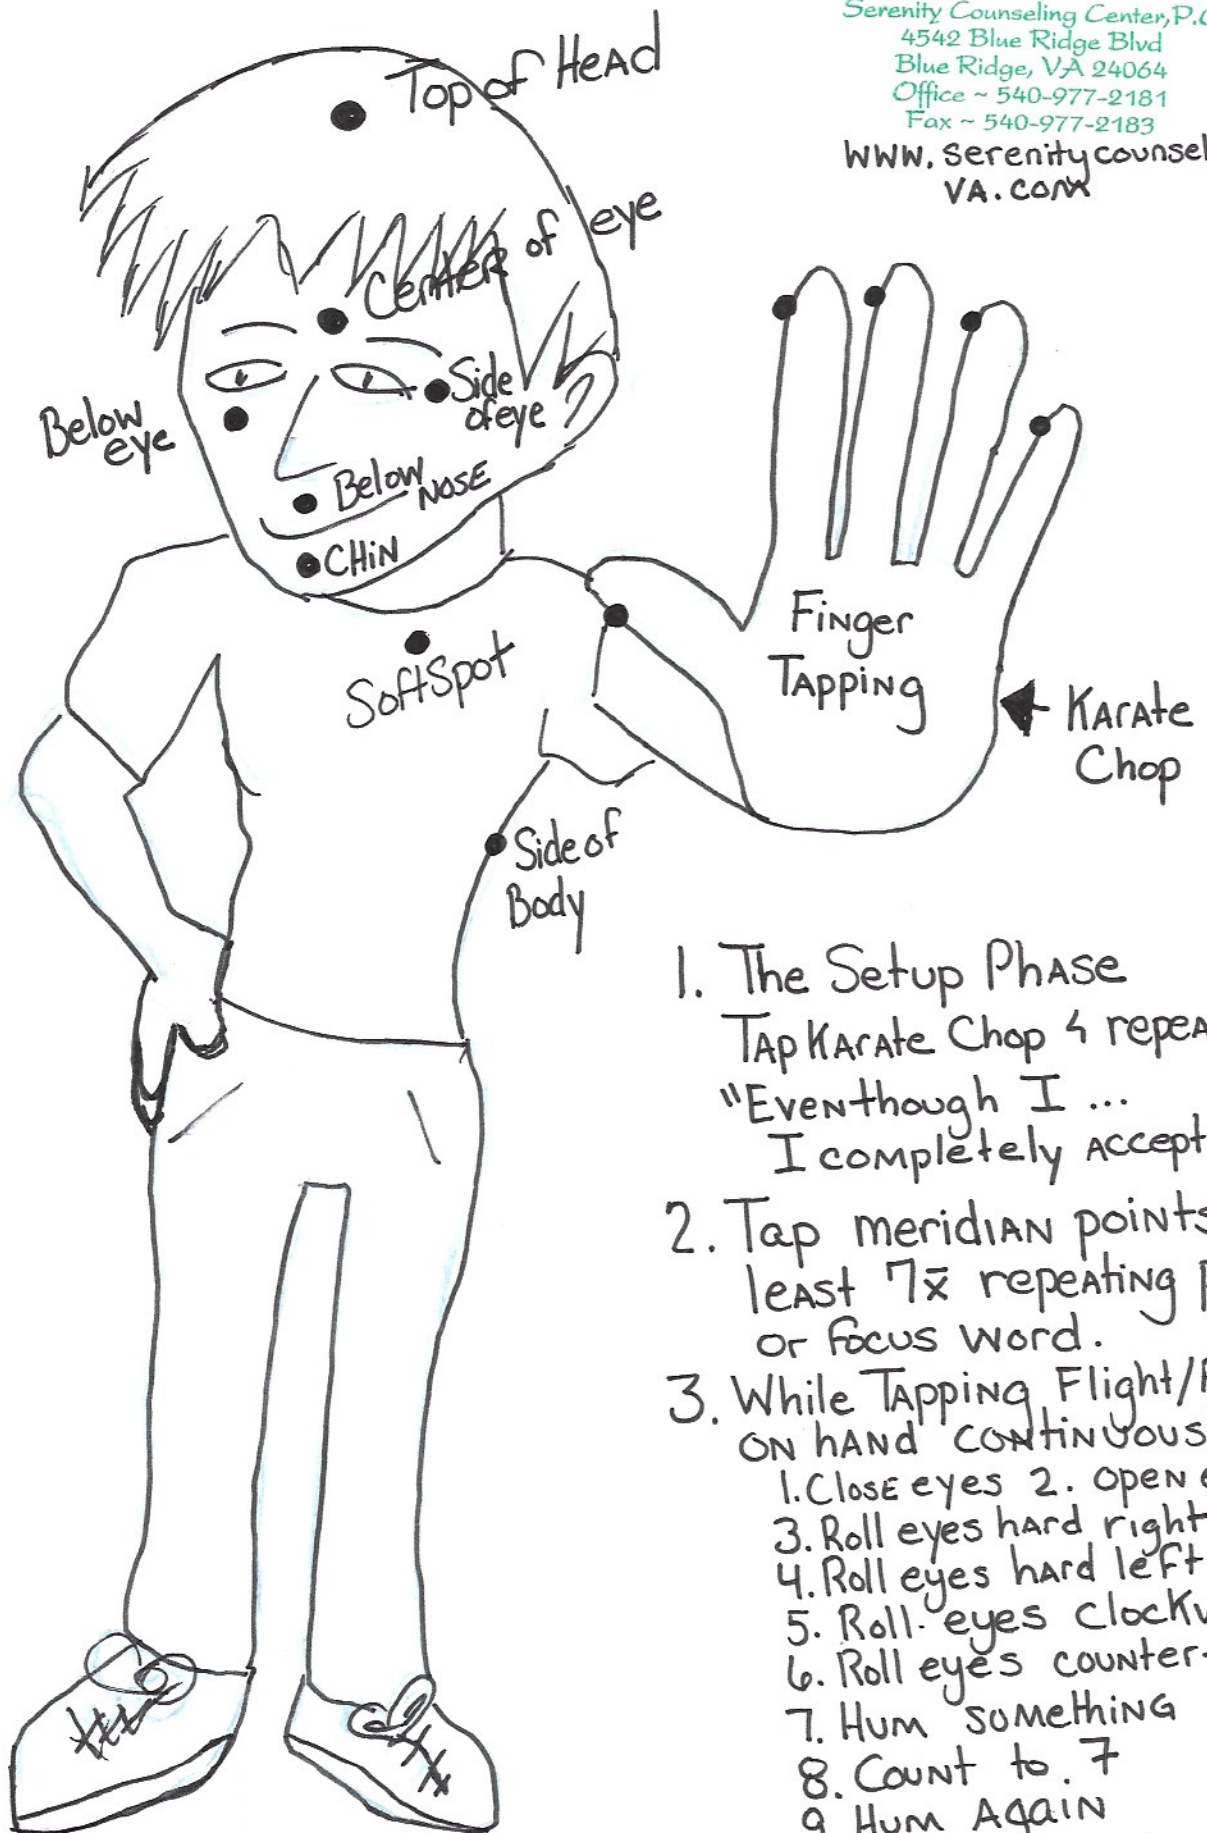 Serenity Counseling Center, P.C
4542 Blue Ridge Blvd
Blue Ridge, VA 24064
Office ~ 540-977-2181
Fax ~ 540-977-2183
WWW.serenitycounsel
VA.com
Top of Head
Center of eye
Side
of eye
Below
eye
Below
NOSE
CHiN
SoftSpot
Finger
TAPPiNg
KArAte
Chop
Side of
Body
1. The Setup PhAse
TAp KArAte Chop & repeA
"Eventhough I ...
I completely Accept
2. Tap meridiAN points
leAst 7x̄ repeAting p
or focus word.
3. While TAppiNg Flight/
oN hANd coNtiNuous
1. Close eyes 2. opeN e
3. Roll eyes hArd right
4. Roll eyes hArd left
5. Roll eyes clockw
6. Roll eyes counter-
7. Hum SomethiNg
8. CouNt to 7
9. Hum AgAiN